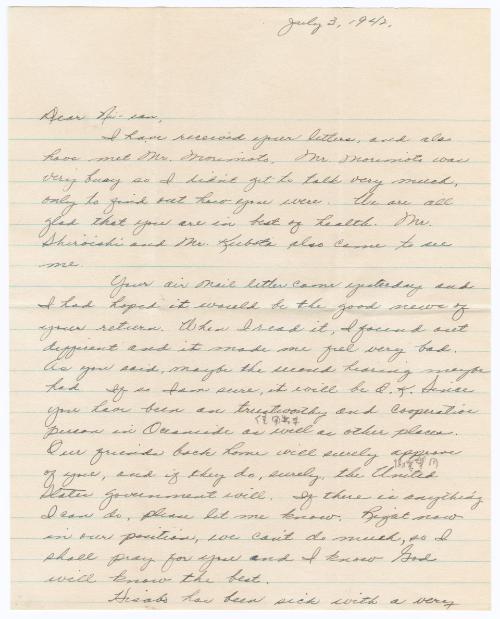 July 3, 1942.
Dear Ni-san,
I have received your letters, and also
have met Mr. Morimoto. Mr. Morimoto was
very busy so I didn't get to talk very much,
only to find out how you were. We are all
glad that you are in best of health. Mr.
Shiroishi and Mr. Kubota also came to see
me.
Your air mail letter came yesterday and
I had hoped it would be the good news of
your return. When I read it, I found out
different and it made me feel very bad.
As you said, maybe the second hearing maybe
had If so I am sure, it will be O.K. Since
you have been an trustworthy and cooperative
person in Oceanside as well as other places.
Our friends back home will surely approve
of you, and if they do, surely, the United
States Government will. If there is anything
I can do, please let me know. Right now
in our position, we can't do much, so I
shall pray for you and I know God
will know the best.
Hisato has been sick with a very